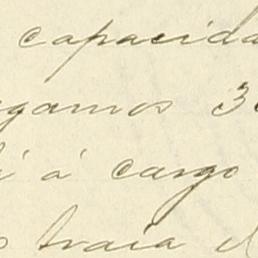 capacida
gamos 3
á cargo
traia el